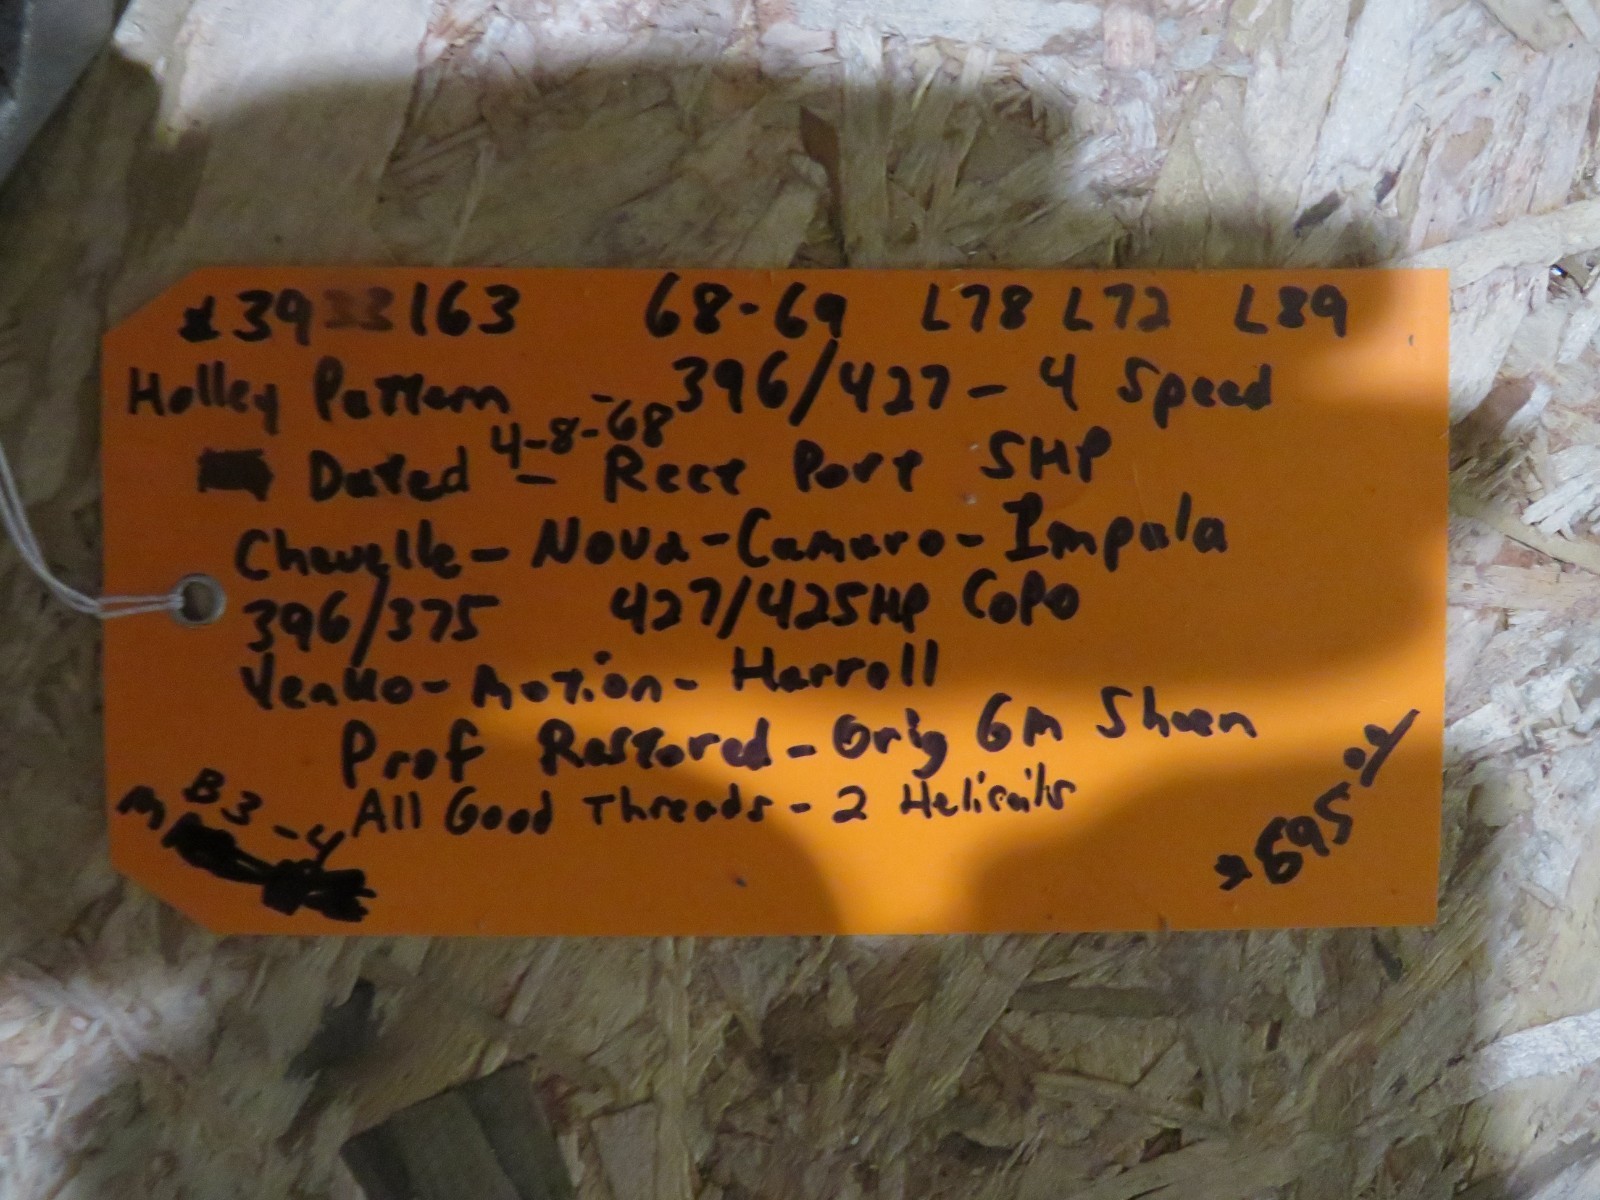 *3933163 68-69 L78 L72 L89
Holley Pattern - 396/427 - 4 Speed
Dated 4-8-68 - Rect Port SHP
Chevelle - Nova - Camaro - Impala
396/375 427/425HP CoPo
Yenko - Motion - Harrell
Prof Restored - Orig GM Sheen
All Good Threads - 2 Helicoils
B3-4
695